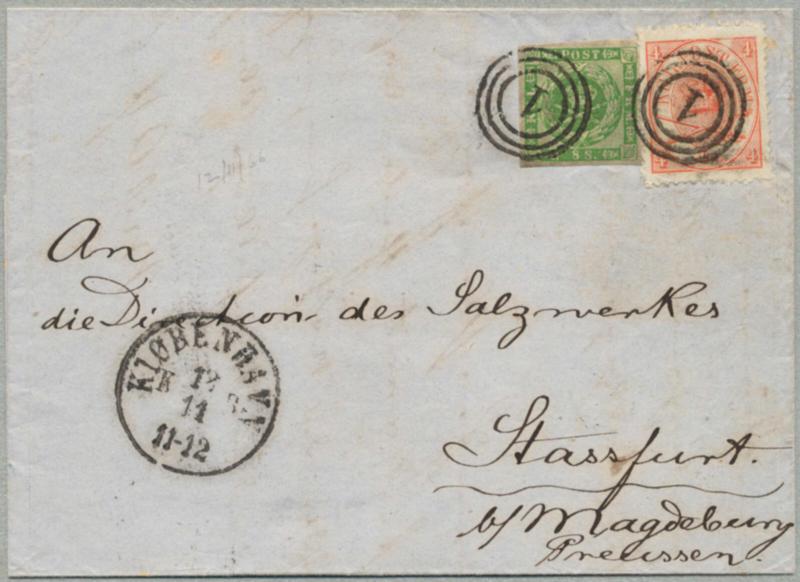 POST
8 S.
1
4 4
1
4 4
12/11/66
An
die Direction des Salzwerkes
KIØBENHAVN
12
11
11-12
Stassfurt.
b/Magdeburg
Preussen.